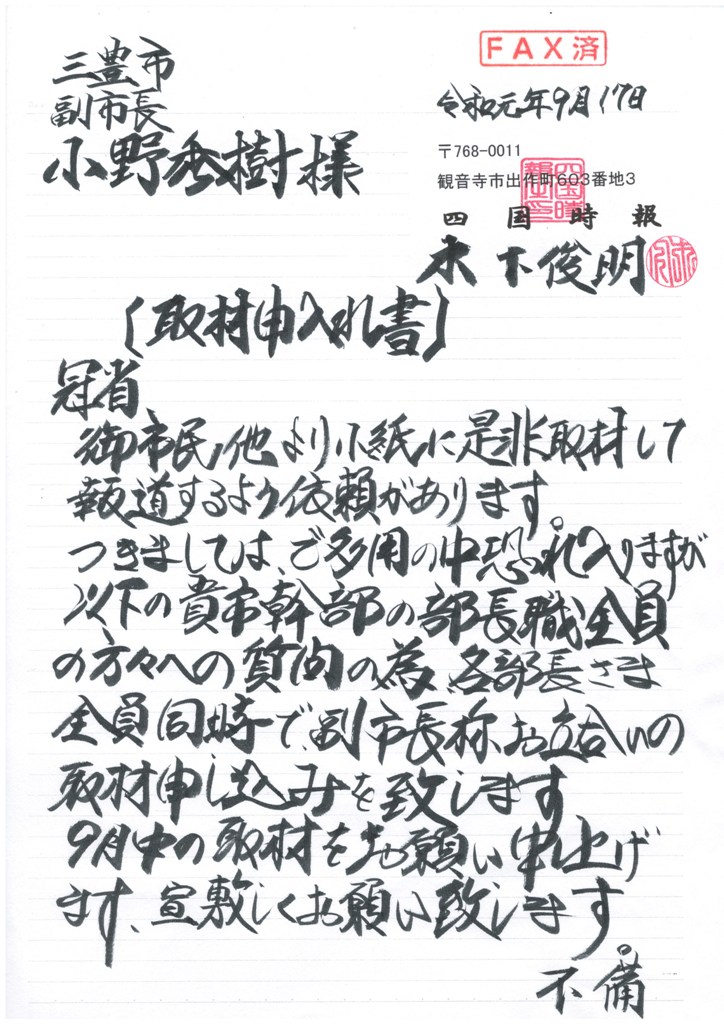 FAX済
三豊市
副市長
小野秀樹様
令和元年9月17日
〒768-0011
観音寺市出作町603番地3
四国時報
木下俊明
(取材申入れ書)
冠省
御市民他より小紙に是非取材して
報道するよう依頼があります。
つきましては、ご多用の中恐れ入りますが
以下の貴市幹部の部長職全員
の方々への質問の為、各部長さま
全員同時で、副市長様お立合いの
取材申し込みを致します
9月中の取材をお願い申し上げ
ます、宜敷しくお願い致します。
不備